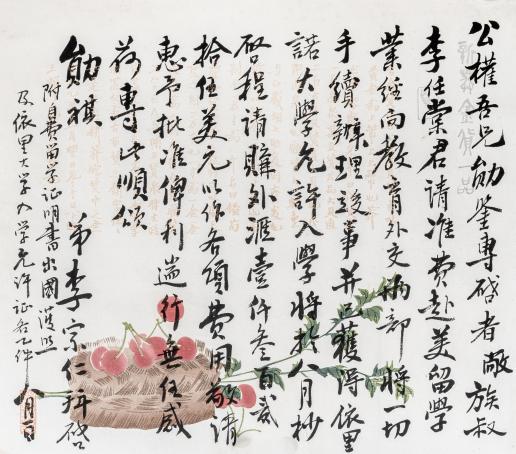 公權吾兄勛鑒專啓者敝族叔
李任棠君請准費赴美留學
業經向教育外交兩部將一切
手續辦理竣事并已獲得依里
諾大學允許入學將於八月杪
啓程請購外滙壹仟叁百貳
拾伍美元以作各項費用敬請
惠予批准俾利遄行無任感
荷專此順頌
勛祺
弟李宗仁拜啓
八月一日
附自費留学证明書出國護照
及依里大学入学允许证各乙件